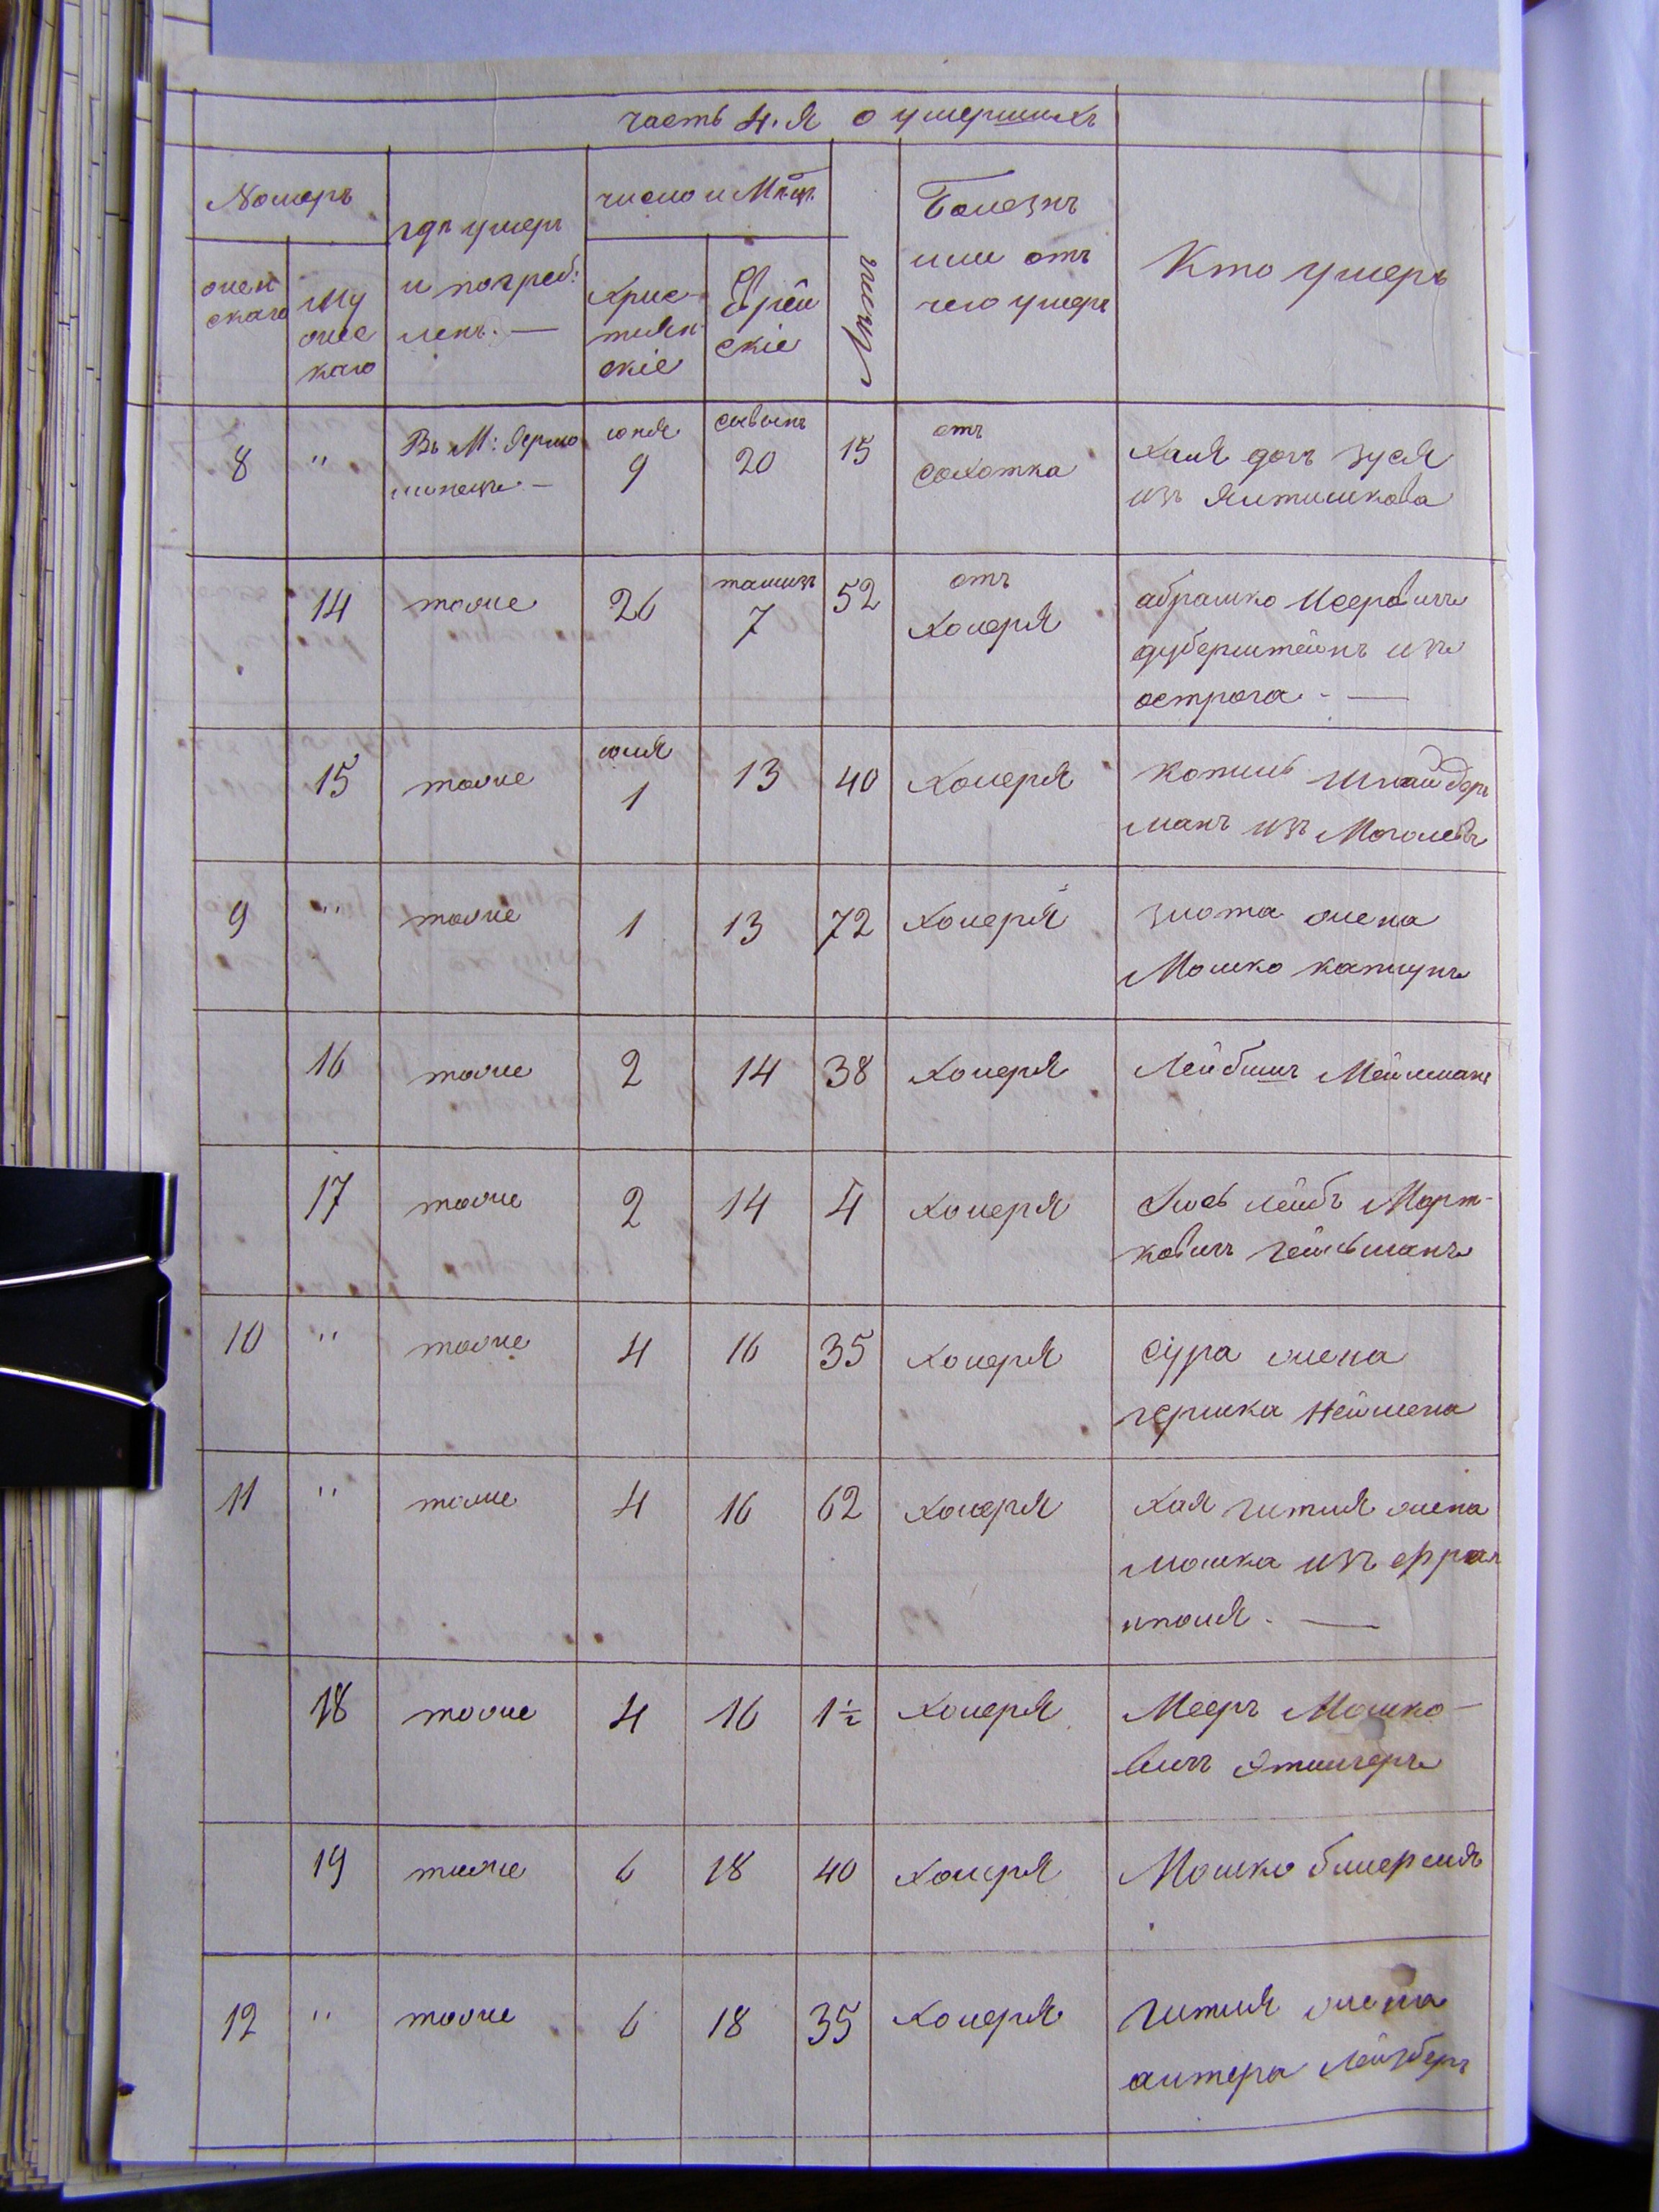 часть 4.я о умершихъ
Номеръ
женскаго
мужескаго
гдѣ умеръ и погребленъ. —
число и Мѣ:ць.
Христианскіе
Еврейскіе
Лѣта
Болезнь или отъ чего умеръ
Кто умеръ
8 " Въ М: Ярмолинецъ — юня 9 сывынъ 20 15 отъ сохотка хая дочь зуся
изъ Ялтишкова
14 тоже 26 тамизъ 7 52 отъ холеря абрашко Иееровичъ
дуберштейнъ изъ
острога. —
15 тоже юля 1 13 40 холеря
манъ изъ Моголевъ
9 " тоже 1 13 72 холеря злота жена
Мошко капцунъ
16 тоже 2 14 38 холеря Лейбишъ Мейлманъ
17 тоже 2 14 4 холеря лейбъ Морт-
ковичъ гельманъ
10 " тоже 4 16 35 холеря сура жена
гершка Неймена
11 " тоже 4 16 62 холеря хая гитля жена
мошка изъ фрам
поля. —
18 тоже 4 16 1½ холеря Мееръ Мошко-
вичъ Этингеръ
19 тоже 6 18 40 холеря Мошко
12 " тоже 6 18 35 холеря гитля жена
алтера Лейзберъ